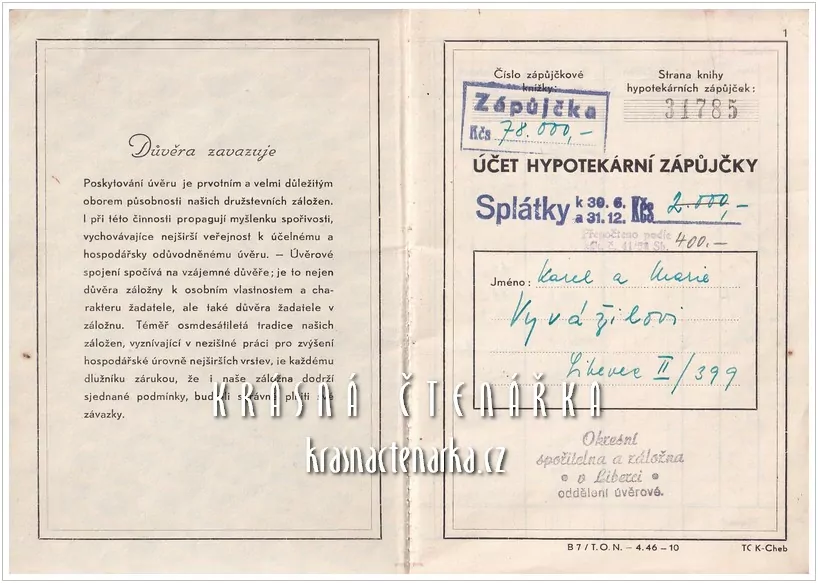 Důvěra zavazuje
Poskytování úvěru je prvotním a velmi důležitým
oborem působnosti našich družstevních záložen.
I při této činnosti propagují myšlenku spořivosti,
vychovávajíce nejširší veřejnost k účelnému a
hospodářsky odůvodněnému úvěru. — Úvěrové
spojení spočívá na vzájemné důvěře; je to nejen
důvěra záložny k osobním vlastnostem a cha-
rakteru žadatele, ale také důvěra žadatele v
záložnu. Téměř osmdesátiletá tradice našich
záložen, vyznívající v nezištné práci pro zvýšení
hospodářské úrovně nejširších vrstev, je každému
dlužníku zárukou, že i naše záložna dodrží
sjednané podmínky, bude-li správně plniti své
závazky.
1
Číslo zápůjčkové
knížky:
Strana knihy
hypotekárních zápůjček:
31785
Zápůjčka
Kčs 78.000,-
ÚČET HYPOTEKÁRNÍ ZÁPŮJČKY
Splátky k 30. 6. a 31. 12. Kčs 2.000,-
Přepočteno podle
zák. č. 41/53 Sb. 400.-
Jméno: Karel a Marie
Vyvážilovi
Liberec II/399
Okresní
spořitelna a záložna
v Liberci
oddělení úvěrové.
B 7 / T. O. N. — 4. 46 — 10
TČ K-Cheb
KRÁSNÁ ČTENÁŘKA
krasnactenarka.cz